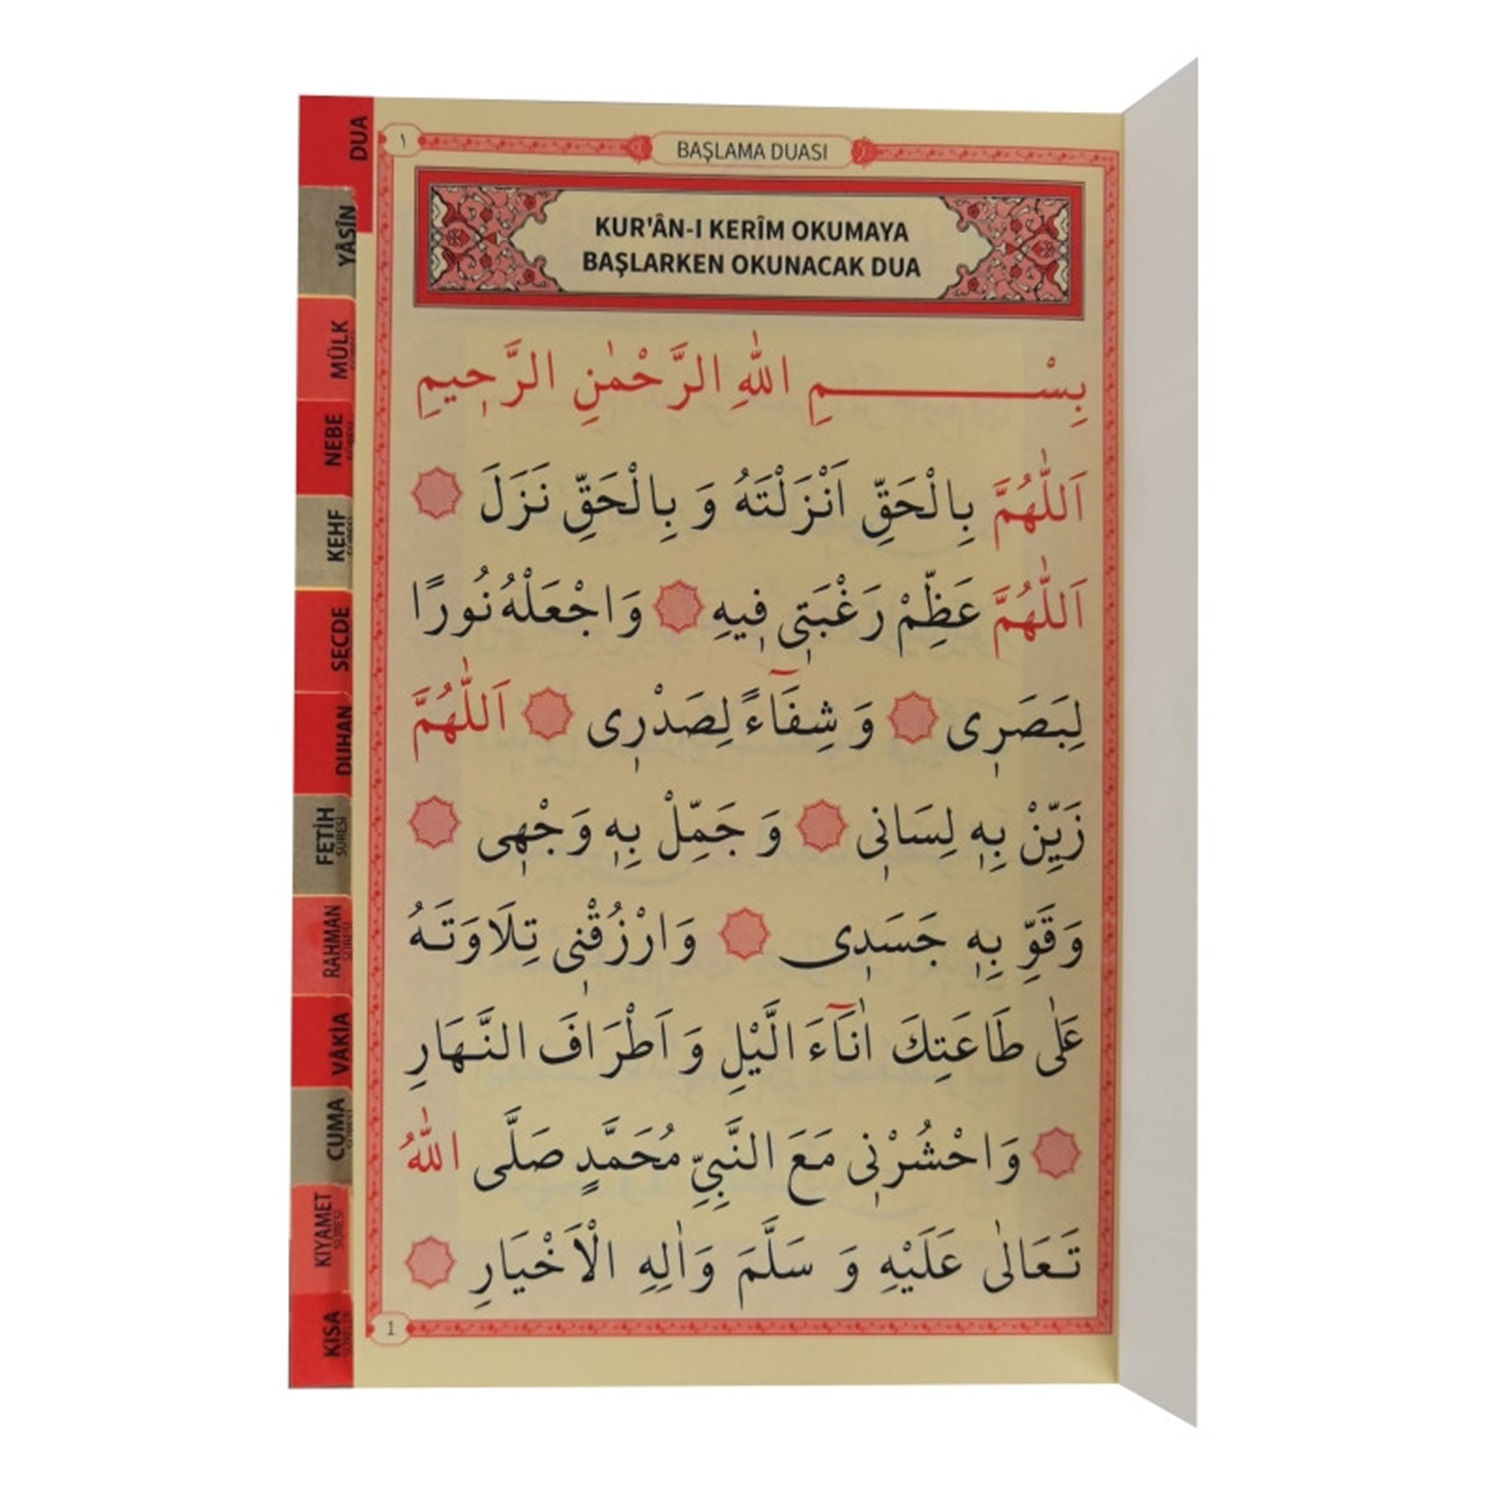 DUA
YÂSÎN
MÜLK
NEBE
KEHF
SECDE
DUHAN
FETİH
SÛRESİ
RAHMAN
SÛRESİ
VÂKIA
CUMA
KIYAMET
SÛRESİ
KISA
SÛRELER
١
BAŞLAMA DUASI
KUR'ÂN-I KERÎM OKUMAYA
BAŞLARKEN OKUNACAK DUA
بِسْمِ اللّٰهِ الرَّحْمٰنِ الرَّحٖيمِ
اَللّٰهُمَّ بِالْحَقِّ اَنْزَلْتَهُ وَ بِالْحَقِّ نَزَلَ
اَللّٰهُمَّ عَظِّمْ رَغْبَتٖى فٖيهِ وَاجْعَلْهُ نُورًا
لِبَصَرٖى وَ شِفَٓاءً لِصَدْرٖى اَللّٰهُمَّ
زَيِّنْ بِهٖ لِسَانٖى وَ جَمِّلْ بِهٖ وَجْهٖى
وَقَوِّ بِهٖ جَسَدٖى وَارْزُقْنٖى تِلَاوَتَهُ
عَلٰى طَاعَتِكَ اٰنَٓاءَ الَّيْلِ وَ اَطْرَافَ النَّهَارِ
وَاحْشُرْنٖى مَعَ النَّبِىِّ مُحَمَّدٍ صَلَّى اللّٰهُ
تَعَالٰى عَلَيْهِ وَ سَلَّمَ وَاٰلِهِ الْاَخْيَارِ
1